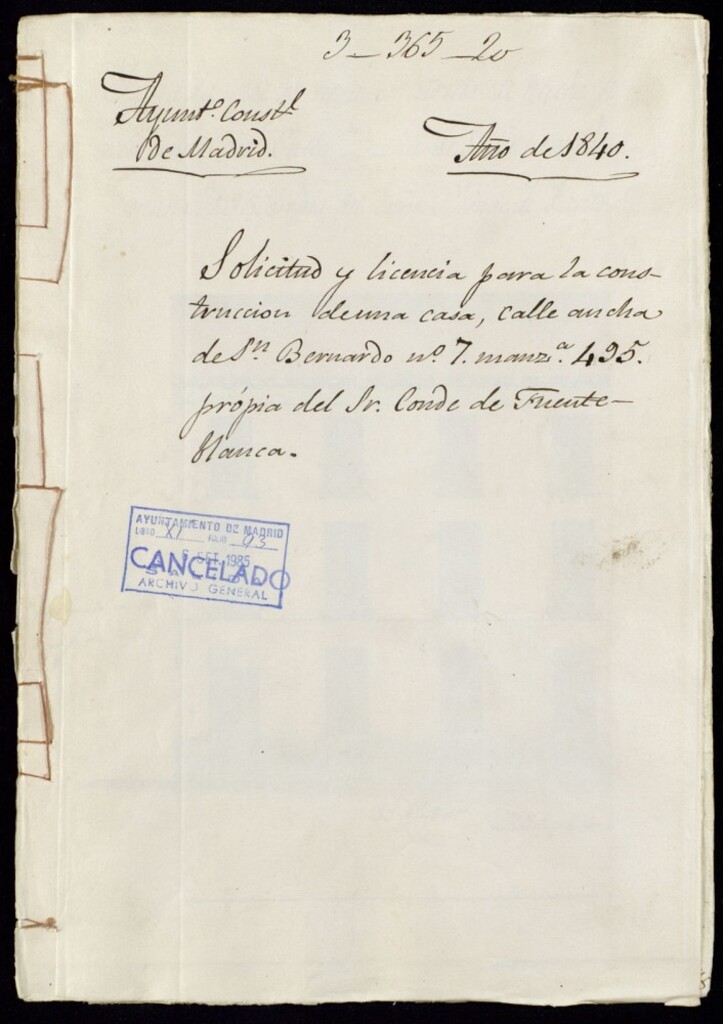 3-365-20
Ayunt.º Const.l
De Madrid.
Año de 1840.
Solicitud y licencia para la cons-
truccion de una casa, calle ancha
de S.n Bernardo nº. 7. manz.ª 495.
própia del Sr. Conde de Fuente-
blanca.
AYUNTAMIENTO DE MADRID
LIBRO XI FOLIO 93
SET. 1985
CANCELADO
ARCHIVO GENERAL